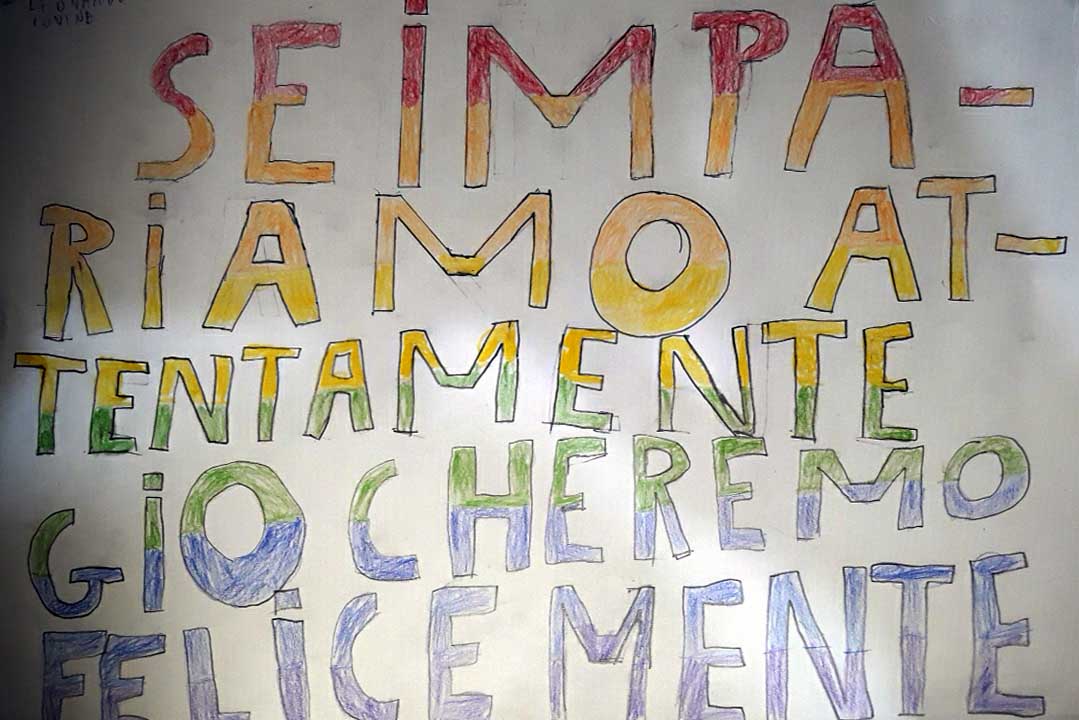 LEONARDO
IOVINE
SE iMPA-
RiAMO AT-
TENTAMENTE
GiOCHEREMO
FELiCEMENTE